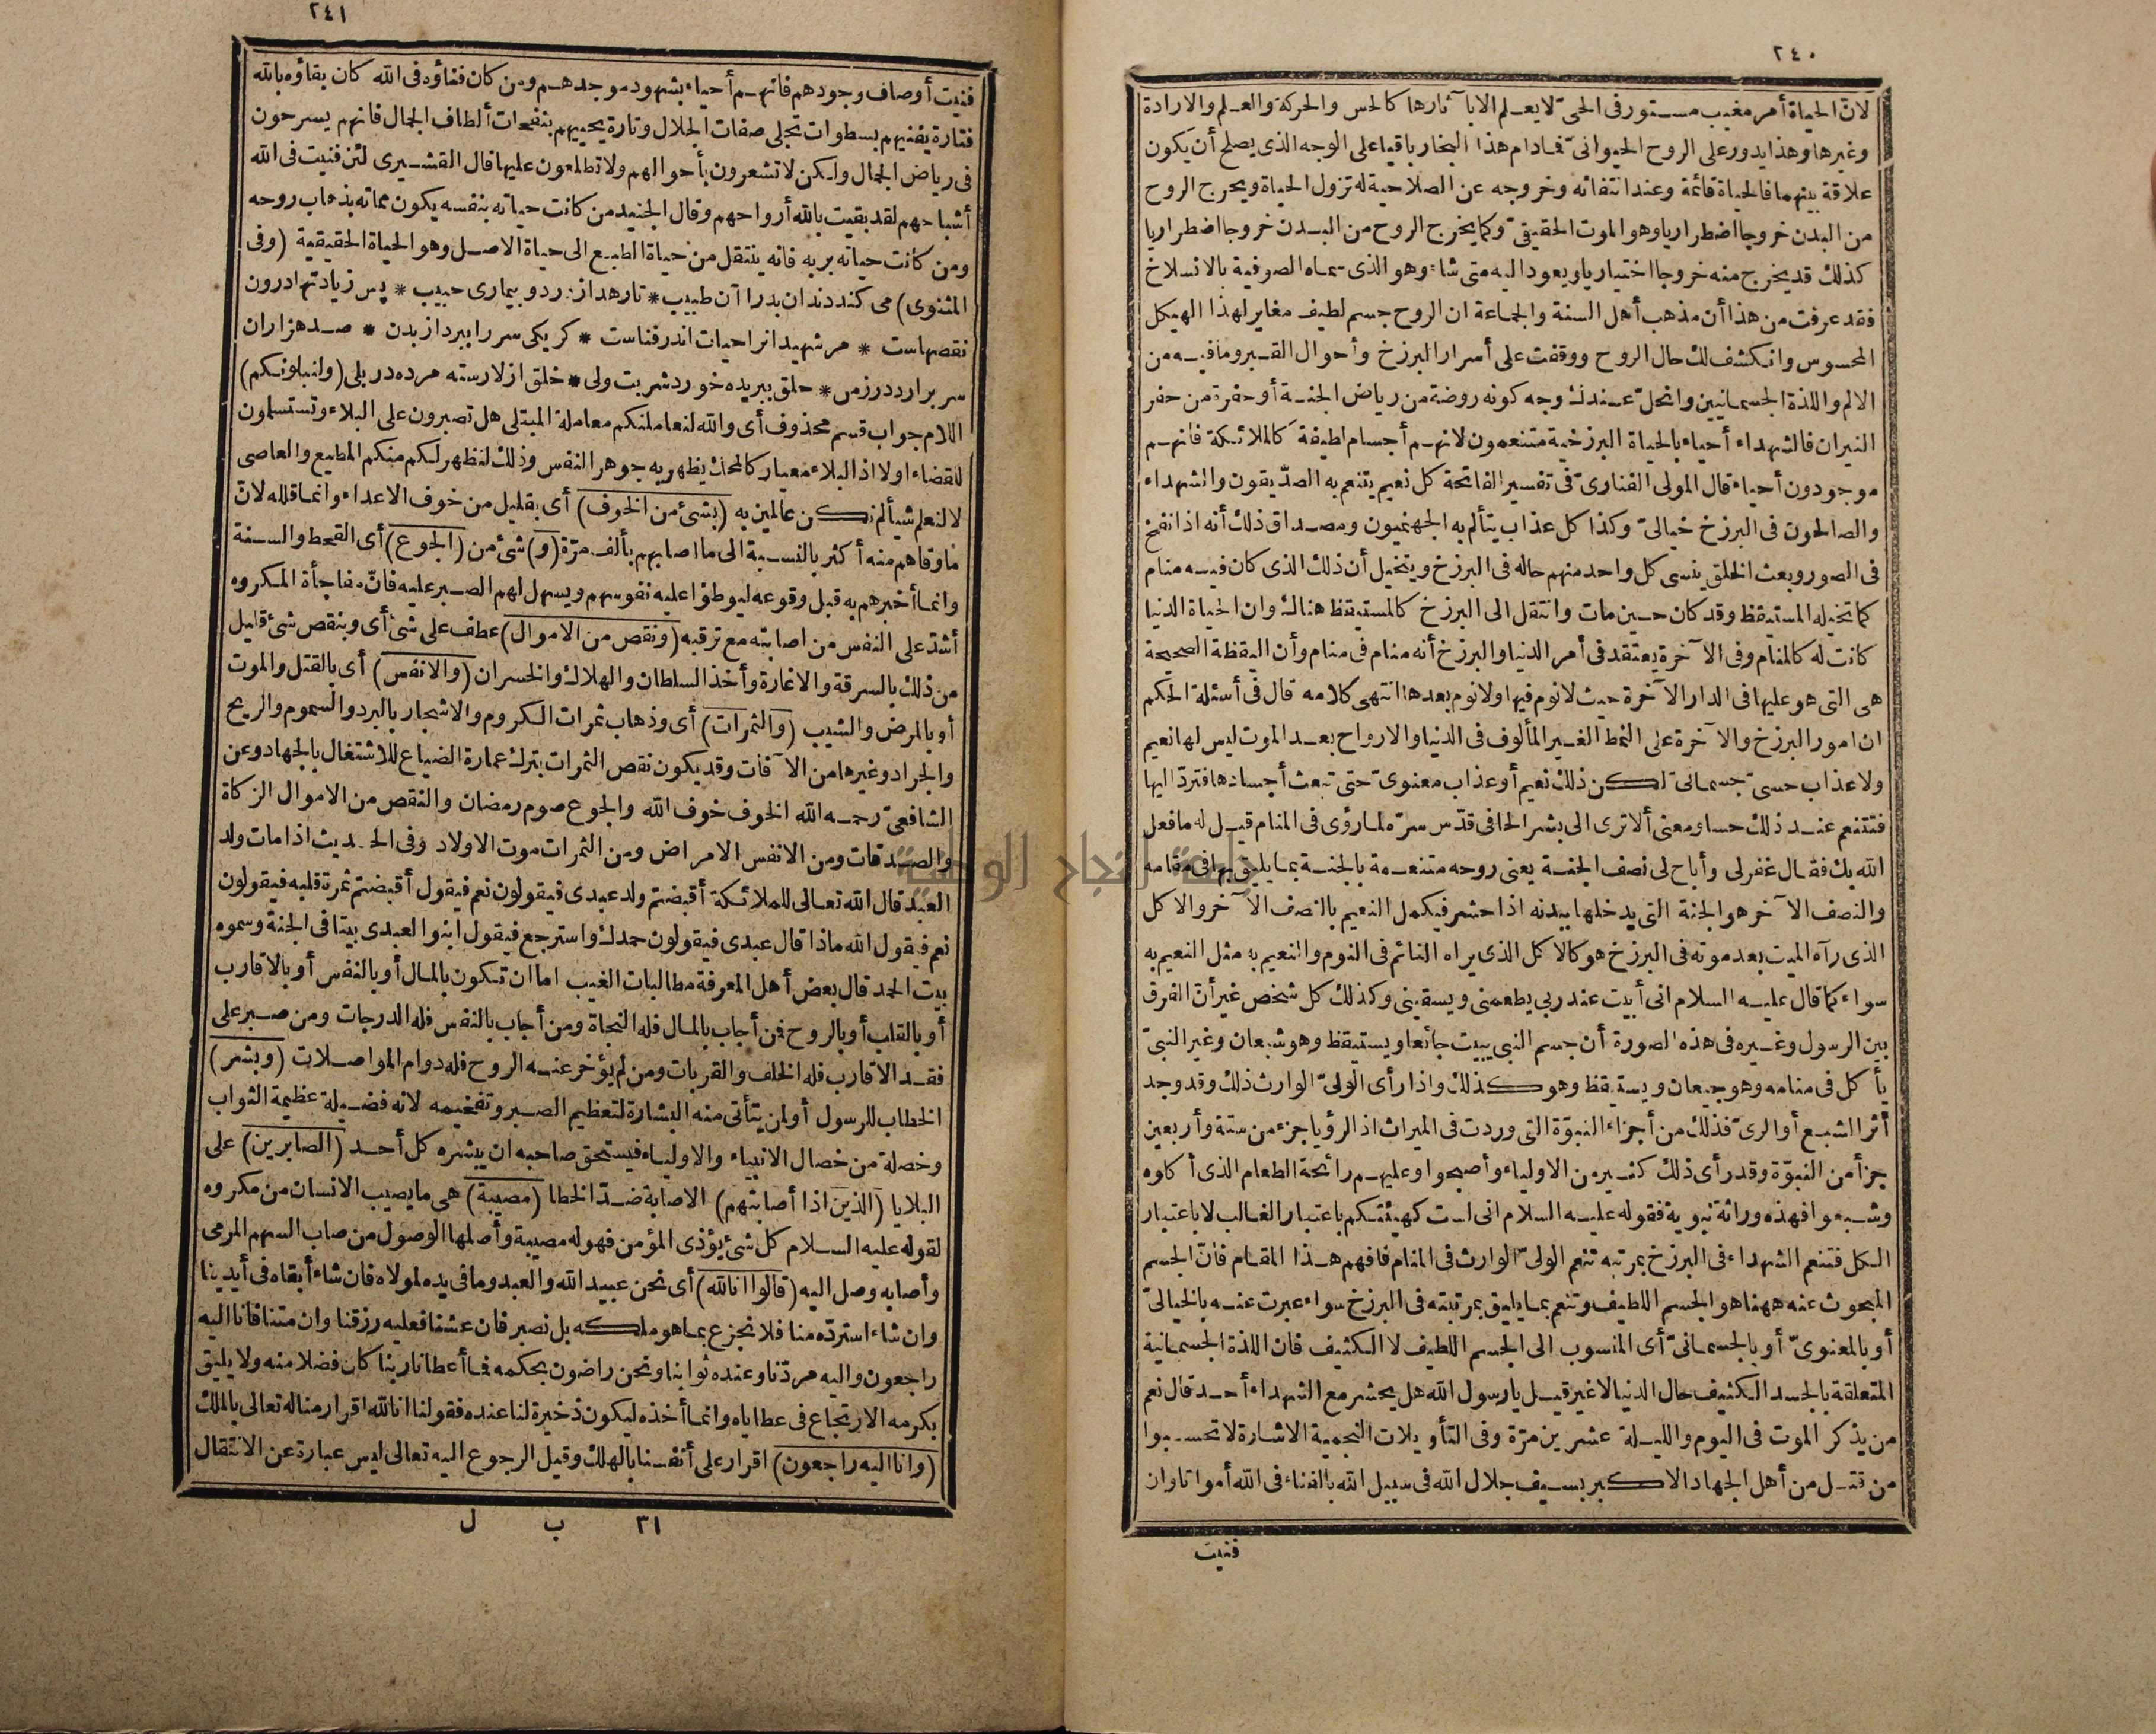 ٢٤٠
لانّ الحياة أمر مغيب مستور فى الحىّ لا يعلم الا بآثارها كالحس والحركة والعلم والارادة
وغيرها وهذا يدور على الروح الحيوانىّ فادام هذا البخار باقيا على الوجه الذى يصلح أن يكون
علاقة بينهما فالحياة قائمة وعند انتفائه وخروجه عن الصلاحية له تزول الحياة ويخرج الروح
من البدن خروجا اضطراريا وهو الموت الحقيقىّ وكما يخرج الروح من البدن خروجا اضطراريا
كذلك قد يخرج منه خروجا اختياريا ويعود اليه متى شاء وهو الذى سماه الصوفية بالانسلاخ
فقد عرفت من هذا أن مذهب أهل السنة والجماعة ان الروح جسم لطيف مغاير لهذا الهيكل
المحسوس وانكشف لك حال الروح ووقفت على أسرار البرزخ وأحوال القبر ومافيه من
الالم واللذة الجسمانيين وانحلّ عندك وجه كونه روضة من رياض الجنة أو حفرة من حفر
النيران فالشهداء أحياء بالحياة البرزخية متنعمون لانهم أجسام لطيفة كالملائكة فانهم
موجودون أحياء قال المولى الفنارىّ فى تفسير الفاتحة كل نعيم يتنعم به الصدّيقون والشهداء
والصالحون فى البرزخ خيالىّ وكذا كل عذاب يتألم به الجهنميون ومصداق ذلك أنه اذا نفخ
فى الصور وبعث الخلق ينسى كل واحد منهم حاله فى البرزخ ويتخيل أن ذلك الذى كان فيه منام
كما تخيله المستيقظ وقد كان حين مات وانتقل الى البرزخ كالمستيقظ هناك وان الحياة الدنيا
كانت له كالمنام وفى الآخرة يعتقد فى أمر الدنيا والبرزخ أنه منام فى منام وأن اليقظة الصحيحة
هى التى هو عليها فى الدار الآخرة حيث لا نوم فيها ولا نوم بعدها انتهى كلامه قال فى أسئلة الحكم
ان امور البرزخ والآخرة على النمط الغير المألوف فى الدنيا والارواح بعد الموت ليس لها نعيم
ولا عذاب حسىّ جسمانىّ لكن ذلك نعيم أو عذاب معنوىّ حتى تبعث أجسادها فتردّ اليها
فتتنعم عند ذلك حسا ومعنى ألا ترى الى بشر الحافى قدّس سرّه لما رؤى فى المنام قيل له ما فعل
الله بك فقال غفر لى وأباح لى نصف الجنة يعنى روحه متنعمة بالجنة بما يليق بها فى مقامه
والنصف الآخر هو الجنة التى يدخلها ببدنه اذا حشر فيكمل النعيم بالنصف الآخر والاكل
الذى رآه الميت بعد موته فى البرزخ هو كالاكل الذى يراه النائم فى النوم والنعيم به مثل النعيم به
سواء كما قال عليه السلام انى أبيت عند ربى يطعمنى ويسقينى وكذلك كل شخص غير أنّ الفرق
بين الرسول وغيره فى هذه الصورة أن جسم النبى يبيت جائعا ويستيقظ وهو شبعان وغير النبىّ
يأكل فى منامه وهو جيعان ويستيقظ وهو كذلك واذا رأى الولىّ الوارث ذلك وقد وجد
أثر الشبع أو الرىّ فذلك من أجزاء النبوّة التى وردت فى الميراث اذ الرؤيا جزء من ستة وأربعين
جزأ من النبوّة وقد رأى ذلك كثير من الاولياء وأصبحوا وعليهم رائحة الطعام الذى أكلوه
وشبعوا فهذه وراثة نبوية فقوله عليه السلام انى لست كهيئتكم باعتبار الغالب لا باعتبار
الكل فتنعم الشهداء فى البرزخ بمرتبة تنعم الولىّ الوارث فى المنام فافهم هذا المقام فانّ الجسم
المبحوث عنه ههنا هو الجسم اللطيف وتنعم بما يليق بمرتبته فى البرزخ سواء عبرت عنه بالخيالىّ
أو بالمعنوىّ أو بالجسمانىّ أى المنسوب الى الجسم اللطيف لا الكثيف فان اللذة الجسمانية
المتعلقة بالجسد الكثيف حال الدنيا لا غير قيل يا رسول الله هل يحشر مع الشهداء أحد قال نعم
من يذكر الموت فى اليوم والليلة عشرين مرّة وفى التأويلات النجمية الاشارة لا تحسبوا
من قتل من أهل الجهاد الاكبر بسيف جلال الله فى سبيل الله بالفناء فى الله أمواتا وان
فنيت
٢٤١
فنيت أوصاف وجودهم فانهم أحياء بشهود موجدهم ومن كان فناؤه فى الله كان بقاؤه بالله
فتارة يفنيهم بسطوات تجلى صفات الجلال وتارة يحييهم بنفحات ألطاف الجمال فانهم يسرحون
فى رياض الجمال ولكن لا تشعرون بأحوالهم ولا تطلعون عليها قال القشيرى لئن فنيت فى الله
أشباحهم لقد بقيت بالله أرواحهم وقال الجنيد من كانت حياته بنفسه يكون مماته بذهاب روحه
ومن كانت حياته بربه فانه ينتقل من حياة الطبع الى حياة الاصل وهو الحياة الحقيقية (وفى
المثنوى) مى كند دندان بدرا آن طبيب * تا رهد از درد وبيمارى حبيب * پس زيادتها درون
نقصهاست * مر شهيدانرا حيات اندر فناست * كر يكى سر را ببرد از بدن * صد هزاران
سر برارد در زمن * حلق ببريده خورد شربت ولى * خلق از لا رسته مرده در بلى (ولنبلونكم)
اللام جواب قسم محذوف أى والله لنعاملنكم معاملة المبتلى هل تصبرون على البلاء وتستسلمون
للقضاء اولا اذ البلاء معيار كالمحك يظهر به جوهر النفس وذلك لنظهر لكم منكم المطيع والعاصى
لا لنعلم شيأ لم نكن عالمين به (بشىء من الخوف) أى بقليل من خوف الاعداء وانما قلله لانّ
ما وقاهم منه أكثر بالنسبة الى ما اصابهم بألف مرّة (و) شىء من (الجوع) أى القحط والسنة
وانما أخبرهم به قبل وقوعه ليوطنوا عليه نفوسهم ويسهل لهم الصبر عليه فانّ مفاجأة المكروه
أشدّ على النفس من اصابته مع ترقبه (ونقص من الاموال) عطف على شىء أى وبنقص شىء قليل
من ذلك بالسرقة والاغارة وأخذ السلطان والهلاك والخسران (والانفس) أى بالقتل والموت
أو بالمرض والشيب (والثمرات) أى وذهاب ثمرات الكروم والاشجار بالبرد والسموم والريح
والجراد وغيرها من الآفات وقد يكون نقص الثمرات بترك عمارة الضياع للاشتغال بالجهاد وعن
الشافعىّ رحمه الله الخوف خوف الله والجوع صوم رمضان والنقص من الاموال الزكاة
والصدقات ومن الانفس الامراض ومن الثمرات موت الاولاد وفى الحديث اذا مات ولد
العبد قال الله تعالى للملائكة أقبضتم ولد عبدى فيقولون نعم فيقول أقبضتم ثمرة قلبه فيقولون
نعم فيقول الله ماذا قال عبدى فيقولون حمدك واسترجع فيقول ابنوا لعبدى بيتا فى الجنة وسموه
بيت الحمد قال بعض أهل المعرفة مطالبات الغيب اما ان تكون بالمال أو بالنفس أو بالاقارب
أو بالقلب أو بالروح فمن أجاب بالمال فله النجاة ومن أجاب بالنفس فله الدرجات ومن صبر على
فقد الاقارب فله الخلف والقربات ومن لم يؤخر عنه الروح فله دوام المواصلات (وبشر)
الخطاب للرسول أو لمن يتأتى منه البشارة لتعظيم الصبر وتفخيمه لانه فضيلة عظيمة الثواب
وخصلة من خصال الانبياء والاولياء فيستحق صاحبه ان يبشره كل أحد (الصابرين) على
البلايا (الذين اذا أصابتهم) الاصابة ضدّ الخطا (مصيبة) هى ما يصيب الانسان من مكروه
لقوله عليه السلام كل شىء يؤذى المؤمن فهو له مصيبة وأصلها الوصول من صاب السهم المرمى
وأصابه وصل اليه (قالوا انا لله) أى نحن عبيد الله والعبد وما فى يده لمولاه فان شاء أبقاه فى أيدينا
وان شاء استردّه منا فلا نجزع بما هو ملكه بل نصبر فان عشنا فعليه رزقنا وان متنا فانا اليه
راجعون واليه مردّنا وعنده ثوابنا ونحن راضون بحكمه فما أعطانا ربنا كان فضلا منه ولا يليق
بكرمه الارتجاع فى عطاياه وانما أخذه ليكون ذخيرة لنا عنده فقولنا انا لله اقرار منا له تعالى بالملك
(وانا اليه راجعون) اقرار على أنفسنا بالهلك وقيل الرجوع اليه تعالى ليس عبارة عن الانتقال
٣١ ب ل